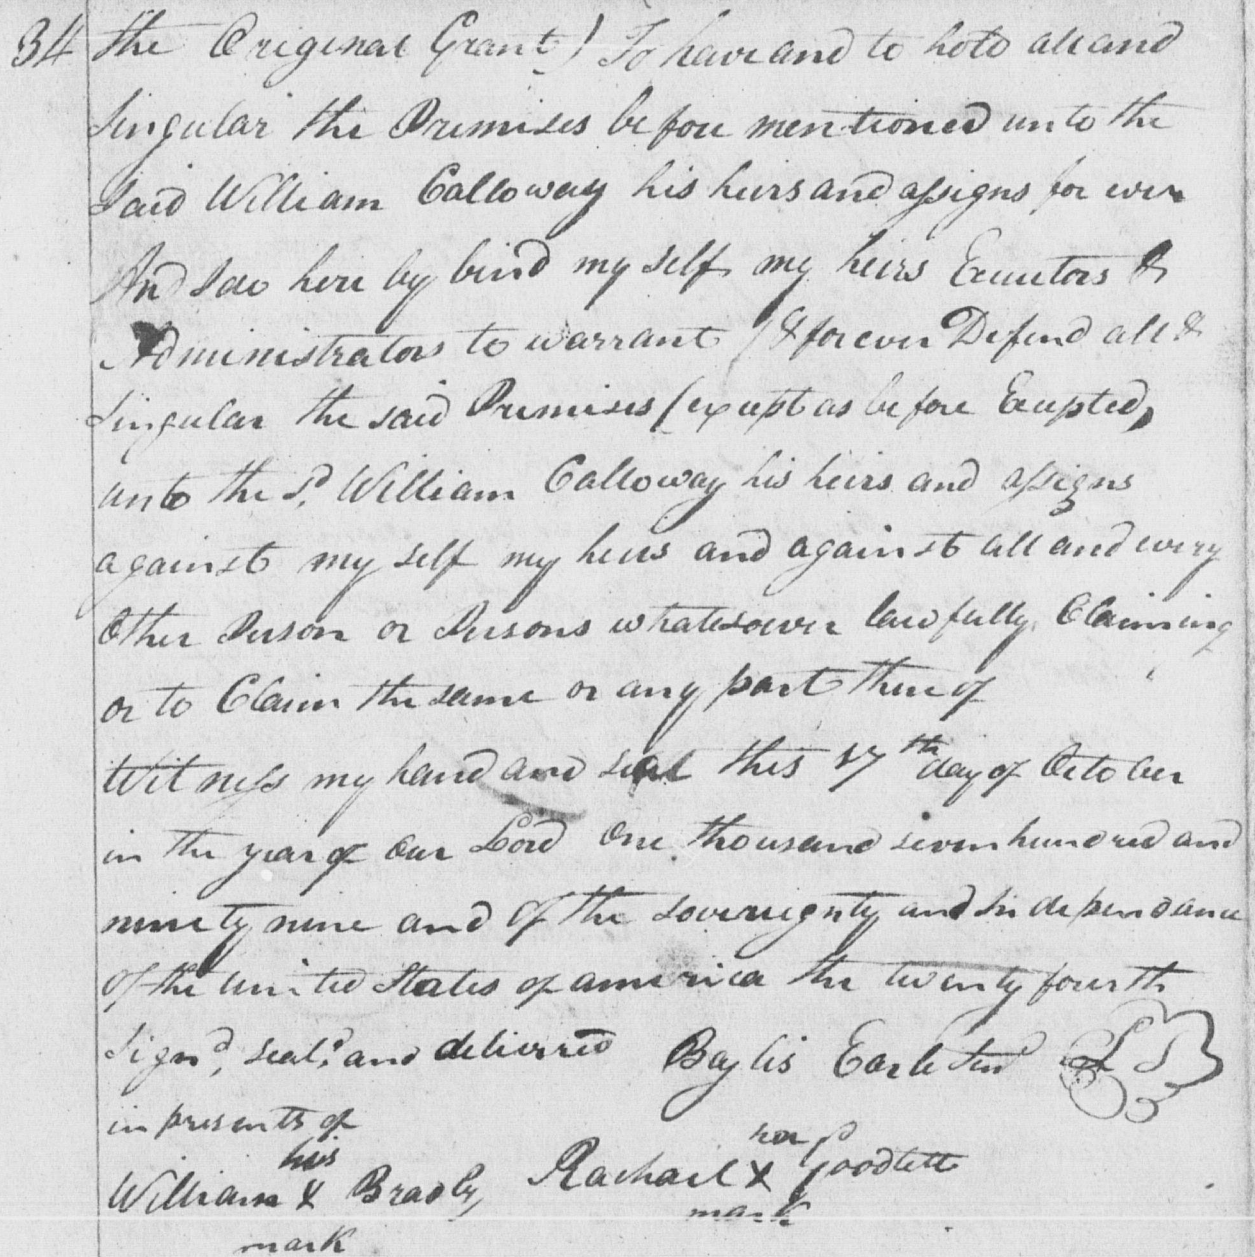 34 the Original Grant) To have and to hold all and
Singular the Premises before mentioned unto the
Said William Calloway his heirs and assigns for ever
And I do here by bind my self my heirs Executors &
Administrators to warrant & forever Defend all &
Singular the said Premises (except as before Excepted,
unto the Sd. William Calloway his heirs and assigns
against my self my heirs and against all and every
Other Person or Persons whatesoever lawfully Claiming
or to Claim the same or any part there of
Witness my hand and seal this 17th day of October
in the year of Our Lord One thousand seven hundred and
ninety nine and Of the sovereignty and Independance
Of the united States of america the twenty fourth
Signd, seald. and deliverred Baylis Earle Senr LS
in presents of
his her
William X Brady Rachael X Goodlett
mark mark